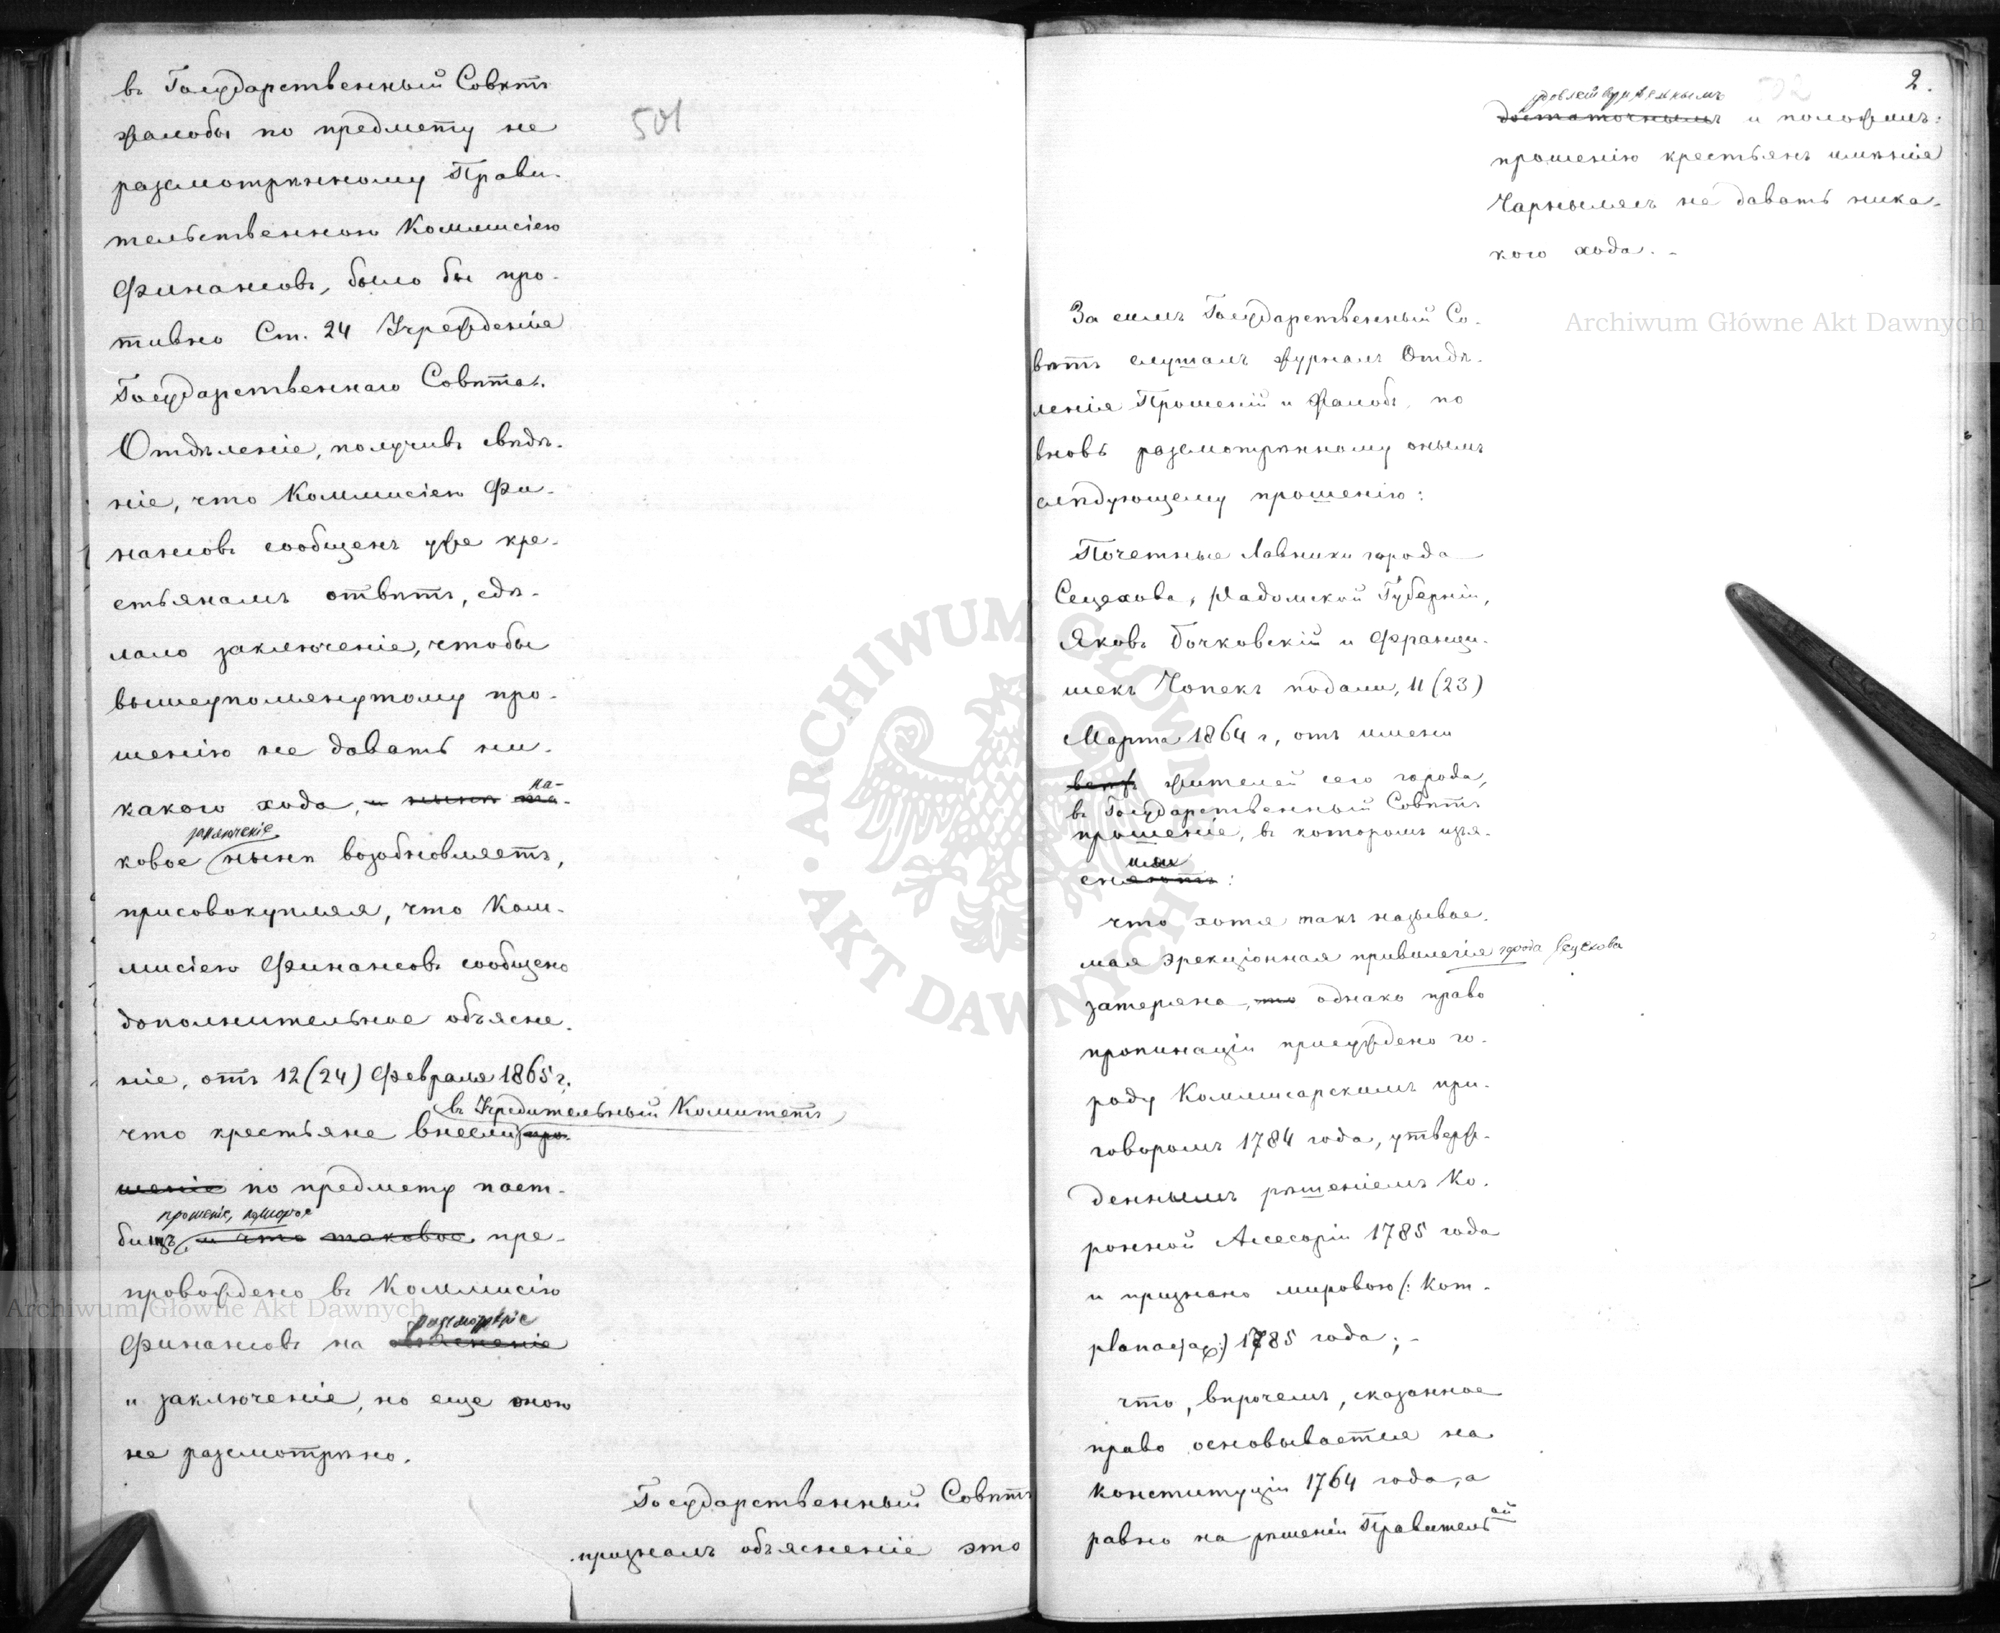 въ Государственный Совѣтъ
жалобы по предмету не
разсмотрѣнному Прави-
тельственною Коммисіею
Финансовъ, было бы про-
тивно Ст. 24 Учрежденія
Государственнаго Совѣта.
Отдѣленіе, получивъ свѣдѣ-
ніе, что Коммисіею Фи-
нансовъ сообщенъ уже кре-
стьянамъ отвѣтъ, сдѣ-
лало заключеніе, чтобы
вышеупомянутому про-
шенію не давать ни-
какого хода, и нынѣ та-
ка-
заключеніе
ковое нынѣ возобновляетъ,
присовокупляя, что Ком-
мисіею Финансовъ сообщено
дополнительное объясне-
ніе, отъ 12 (24) Февраля 1865 г.
въ Учредительный Комитетъ
что крестьяне внесли про-
шеніе по предмету паст-
прошеніе, которое
бищъ, и что таковое пре-
провождено въ Коммисію
разсмотрѣніе
Финансовъ на
и заключеніе, но еще оною
не разсмотрѣно.
Государственный Совѣтъ
призналъ объясненіе это
501
2.
удовлетворительнымъ
достаточнымъ и положилъ:
прошенію крестьянъ имѣнія
Чарнылясъ не давать ника-
кого хода. -
За симъ Государственный Со-
вѣтъ слушалъ журналъ Отдѣ-
ленія Прошеній и Жалобъ, по
вновь разсмотрѣнному онымъ
слѣдующему прошенію:
Почетные Лавники города
Сецехова, Радомской Губерніи,
Яковъ Бочковскій и Францы-
шекъ Чопекъ подали, 11 (23)
Марта 1864 г, отъ имени
всѣхъ жителей сего города,
въ Государственный Совѣтъ
прошеніе, въ которомъ изъя-
шали
сняютъ:
что хотя такъ называе-
мая эрекціонная привилегія города Сецехова
затеряна, но однако право
пропинаціи присуждено го-
роду Коммисарскимъ при-
говоромъ 1784 года, утверж-
деннымъ рѣшеніемъ Ко-
ронной Ассесоріи 1785 года
и признано мировою (: Kom-
planacja :) 1785 года; -
что, впрочемъ, сказанное
право основывается на
Конституціи 1764 года, а
равно на рѣшеніи Правительой
Archiwum Główne Akt Dawnych
Archiwum Główne Akt Dawnych
ARCHIWUM GŁÓWNE AKT DAWNYCH